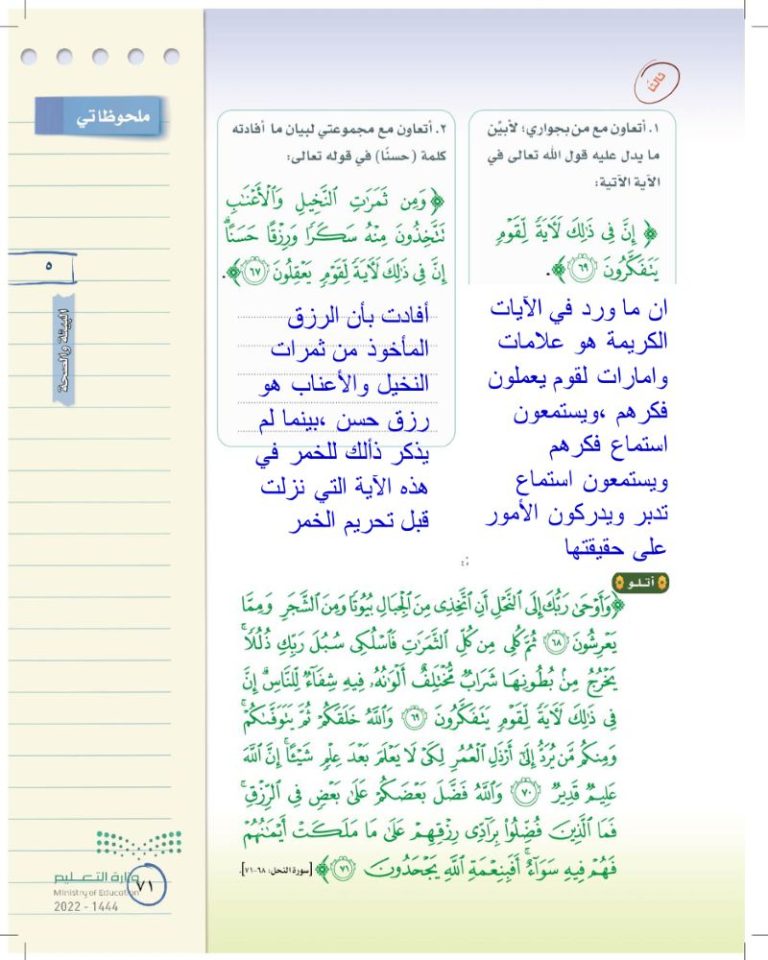 ثالثًا
١. أتعاون مع من بجواري؛ لأبيّن
ما يدل عليه قول الله تعالى في
الآية الآتية:
﴿ إِنَّ فِي ذَٰلِكَ لَآيَةً لِّقَوْمٍ
يَتَفَكَّرُونَ ﴿٦٩﴾ ﴾.
ان ما ورد في الآيات
الكريمة هو علامات
وامارات لقوم يعملون
فكرهم ،ويستمعون
استماع فكرهم
ويستمعون استماع
تدبر ويدركون الأمور
على حقيقتها
٢. أتعاون مع مجموعتي لبيان ما أفادته
كلمة (حسنًا) في قوله تعالى:
﴿ وَمِن ثَمَرَٰتِ ٱلنَّخِيلِ وَٱلْأَعْنَٰبِ
تَتَّخِذُونَ مِنْهُ سَكَرًا وَرِزْقًا حَسَنًا ۗ
إِنَّ فِي ذَٰلِكَ لَآيَةً لِّقَوْمٍ يَعْقِلُونَ ﴿٦٧﴾ ﴾.
أفادت بأن الرزق
المأخوذ من ثمرات
النخيل والأعناب هو
رزق حسن ،بينما لم
يذكر ذألك للخمر في
هذه الآية التي نزلت
قبل تحريم الخمر
أتلو
﴿ وَأَوْحَىٰ رَبُّكَ إِلَى ٱلنَّحْلِ أَنِ ٱتَّخِذِي مِنَ ٱلْجِبَالِ بُيُوتًا وَمِنَ ٱلشَّجَرِ وَمِمَّا
يَعْرِشُونَ ﴿٦٨﴾ ثُمَّ كُلِي مِن كُلِّ ٱلثَّمَرَٰتِ فَٱسْلُكِي سُبُلَ رَبِّكِ ذُلُلًا ۚ
يَخْرُجُ مِنۢ بُطُونِهَا شَرَابٌ مُّخْتَلِفٌ أَلْوَٰنُهُۥ فِيهِ شِفَآءٌ لِّلنَّاسِ ۗ إِنَّ
فِي ذَٰلِكَ لَآيَةً لِّقَوْمٍ يَتَفَكَّرُونَ ﴿٦٩﴾ وَٱللَّهُ خَلَقَكُمْ ثُمَّ يَتَوَفَّىٰكُمْ ۚ
وَمِنكُم مَّن يُرَدُّ إِلَىٰٓ أَرْذَلِ ٱلْعُمُرِ لِكَيْ لَا يَعْلَمَ بَعْدَ عِلْمٍ شَيْـًٔا ۚ إِنَّ ٱللَّهَ
عَلِيمٌ قَدِيرٌ ﴿٧٠﴾ وَٱللَّهُ فَضَّلَ بَعْضَكُمْ عَلَىٰ بَعْضٍ فِي ٱلرِّزْقِ ۚ
فَمَا ٱلَّذِينَ فُضِّلُوا۟ بِرَآدِّي رِزْقِهِمْ عَلَىٰ مَا مَلَكَتْ أَيْمَٰنُهُمْ
فَهُمْ فِيهِ سَوَآءٌ ۚ أَفَبِنِعْمَةِ ٱللَّهِ يَجْحَدُونَ ﴿٧١﴾ ﴾ [سورة النحل: ٦٨-٧١].
ملحوظاتي
٥
البيئة والصحة
وزارة التعليم
Ministry of Education
2022 - 1444
٧١